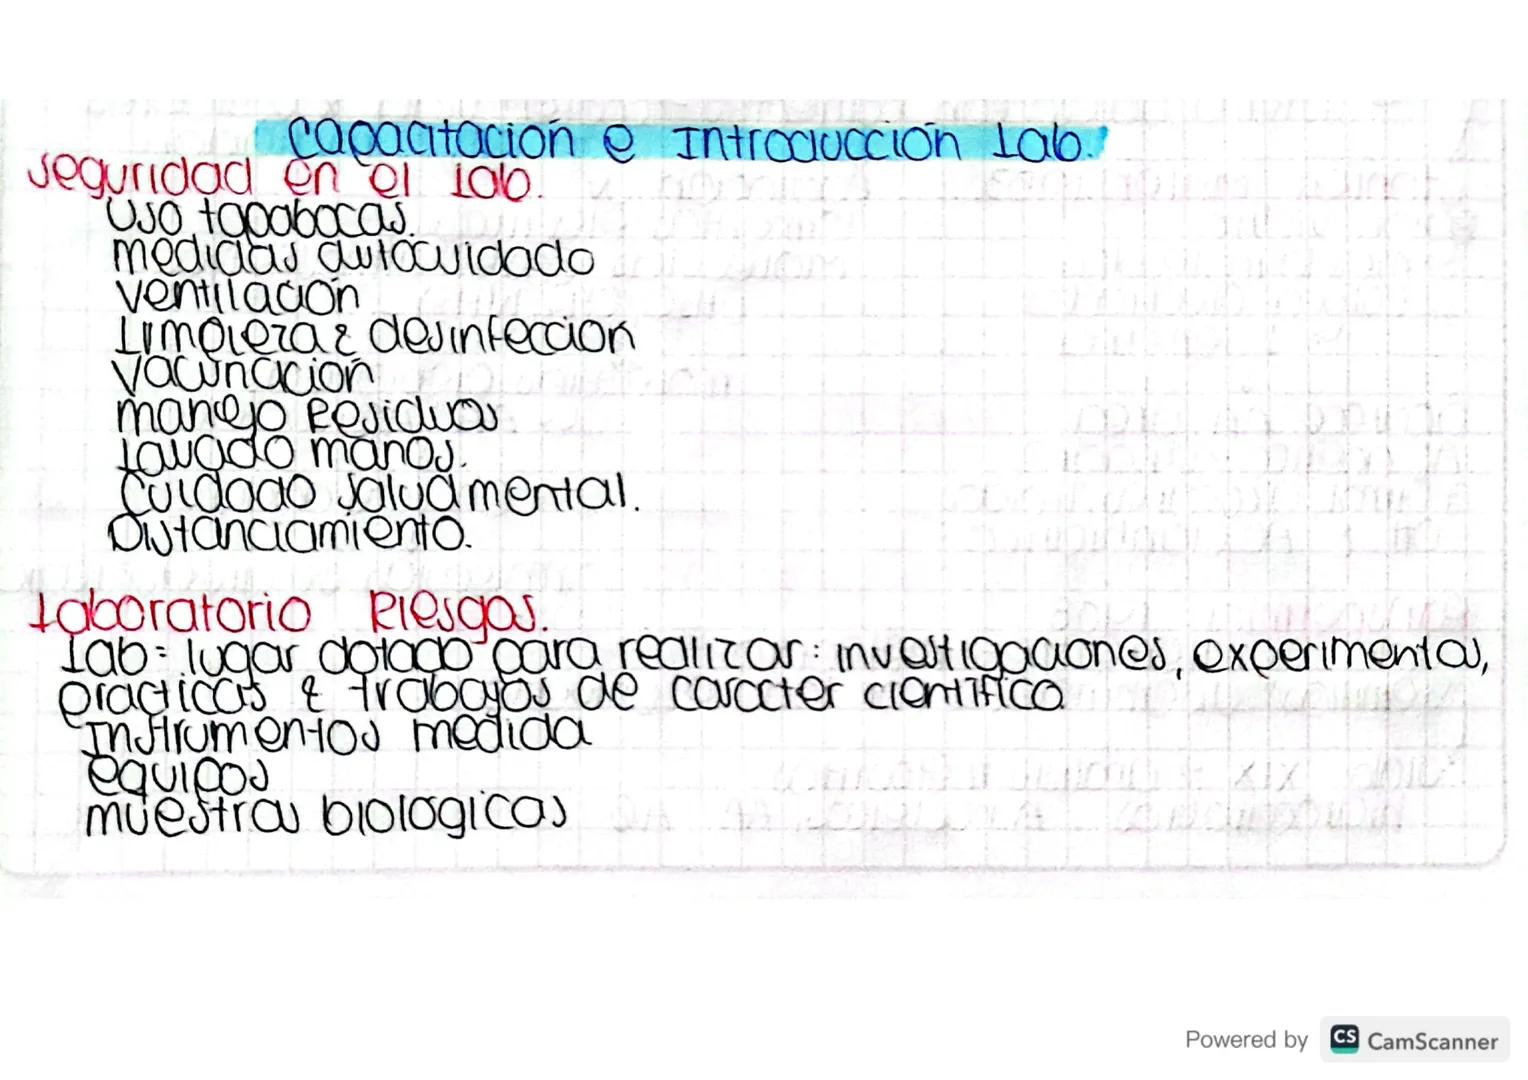 Capacitación e Introducción Lab.
Seguridad en el Lab.
Uso tapabocas.
medidas autocuidado
Ventilación
Limpieza & desinfeccion
Vacunación
manejo Residuos
Lavado manos.
Cuidado salud mental.
Distanciamiento.
Laboratorio Riesgos.
Lab = lugar dotado para realizar: investigaciones, experimentos,
practicas & trabajos de caracter científico
Instrumentos medida
equipos
muestras biologicas
Powered by CS CamScanner